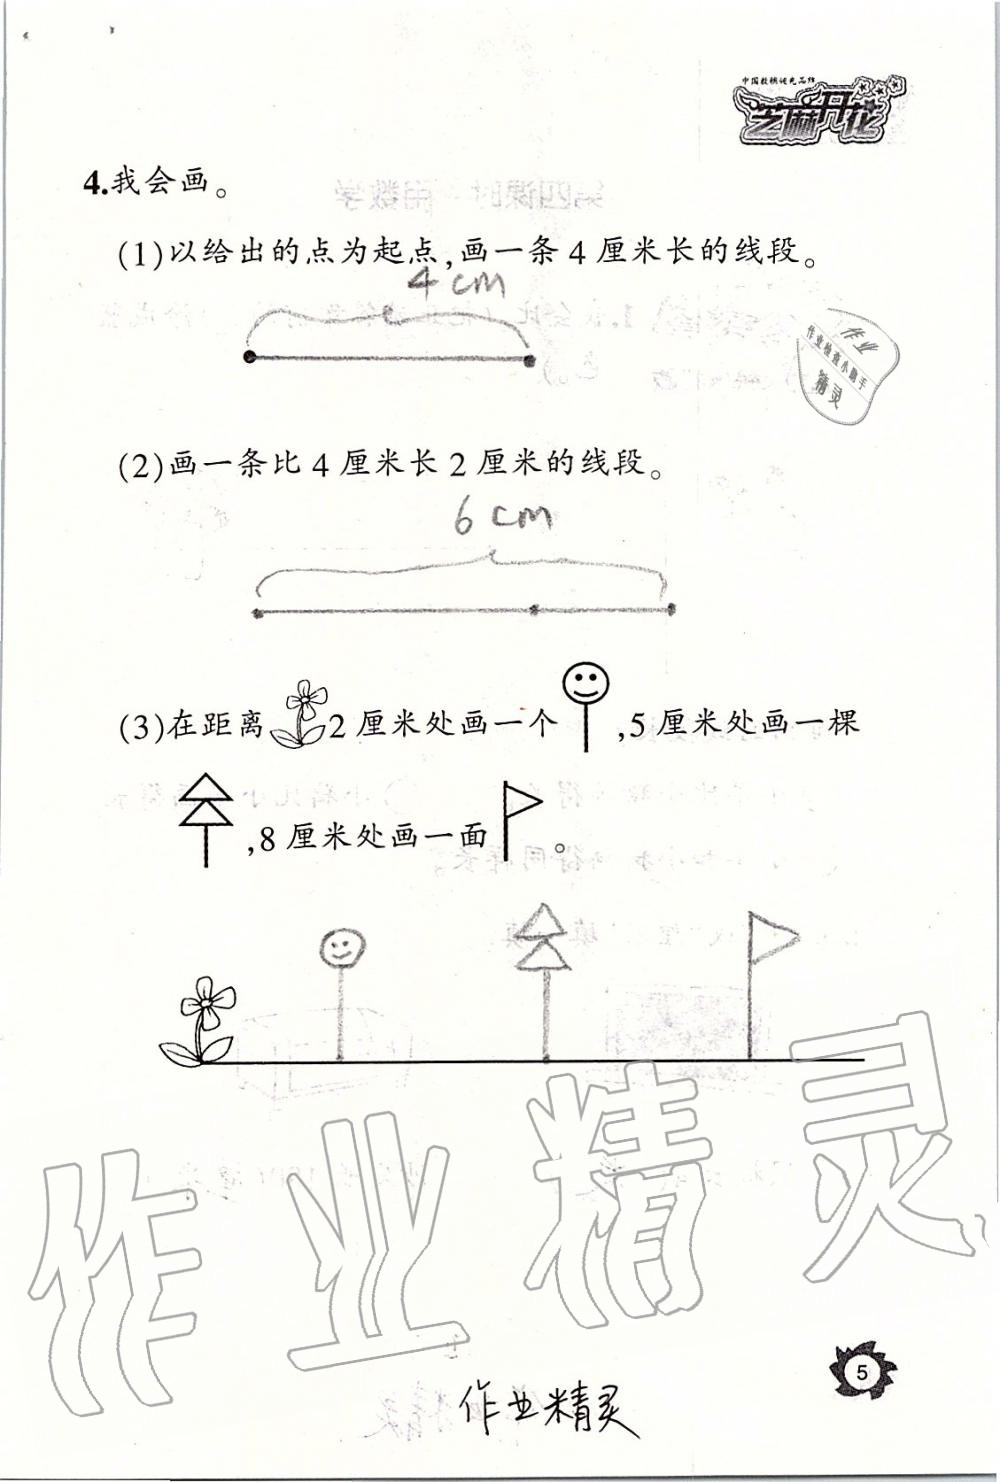 中国教辅领先品牌
芝麻开花
4.我会画。
(1)以给出的点为起点,画一条4厘米长的线段。
4cm
作业
作业检查小助手
精灵
(2)画一条比4厘米长2厘米的线段。
6cm
(3)在距离2厘米处画一个,5厘米处画一棵
,8厘米处画一面。
作业精灵
5
作业精灵